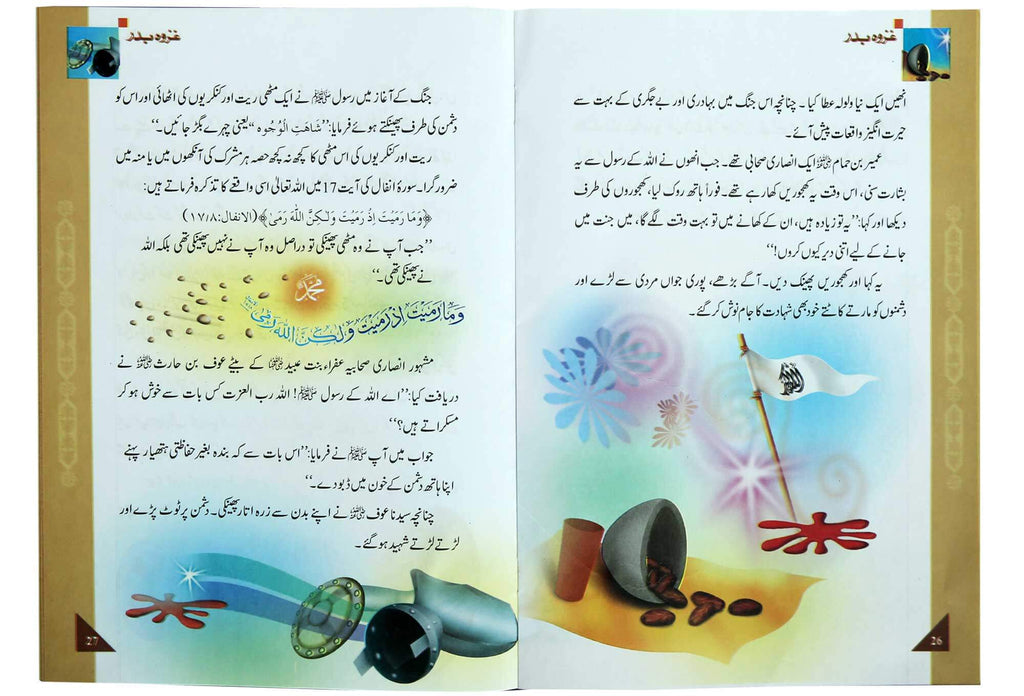 غزوہ بدر
انھیں ایک نیا ولولہ عطا کیا ۔ چنانچہ اس جنگ میں بہادری اور بے جگری کے بہت سے
حیرت انگیز واقعات پیش آئے۔
عمیر بن حمام ؓ ایک انصاری صحابی تھے۔ جب انھوں نے اللہ کے رسول سے یہ
بشارت سنی، اس وقت یہ کھجوریں کھا رہے تھے۔ فوراً ہاتھ روک لیا، کھجوروں کی طرف
دیکھا اور کہا:’’یہ تو زیادہ ہیں، ان کے کھانے میں تو بہت وقت لگے گا، میں جنت میں
جانے کے لیے اتنی دیر کیوں کروں!‘‘
یہ کہا اور کھجوریں پھینک دیں۔ آگے بڑھے، پوری جواں مردی سے لڑے اور
دشمنوں کو مارتے کاٹتے خود بھی شہادت کا جام نوش کر گئے۔
26
غزوہ بدر
جنگ کے آغاز میں رسول ﷺ نے ایک مٹھی ریت اور کنکریوں کی اٹھائی اور اس کو
دشمن کی طرف پھینکتے ہوئے فرمایا:’’شَاهَتِ الْوُجُوه ‘‘یعنی چہرے بگڑ جائیں۔‘‘
ریت اور کنکریوں کی اس مٹھی کا کچھ نہ کچھ حصہ ہر مشرک کی آنکھوں میں یا منہ میں
ضرور گرا۔ سورۂ انفال کی آیت 17 میں اللہ تعالیٰ اسی واقعے کا تذکرہ فرماتے ہیں:
﴿وَمَا رَمَيْتَ اِذْ رَمَيْتَ وَلٰكِنَّ اللّٰهَ رَمٰى﴾(الانفال:۱۷/۸)
’’جب آپ نے وہ مٹھی پھینکی تو دراصل وہ آپ نے نہیں پھینکی تھی بلکہ اللہ
نے پھینکی تھی۔‘‘
محمد
وَمَا رَمَيْتَ اِذْ رَمَيْتَ وَلٰكِنَّ اللّٰهَ رَمٰى
مشہور انصاری صحابیہ عفراء بنت عبید ؓ کے بیٹے عوف بن حارث ؓ نے
دریافت کیا:’’اے اللہ کے رسول ﷺ! اللہ رب العزت کس بات سے خوش ہو کر
مسکراتے ہیں؟‘‘
جواب میں آپ ﷺ نے فرمایا:’’اس بات سے کہ بندہ بغیر حفاظتی ہتھیار پہنے
اپنا ہاتھ دشمن کے خون میں ڈبو دے۔‘‘
چنانچہ سیدنا عوف ؓ نے اپنے بدن سے زرہ اتار پھینکی۔ دشمن پر ٹوٹ پڑے اور
لڑتے لڑتے شہید ہو گئے۔
27